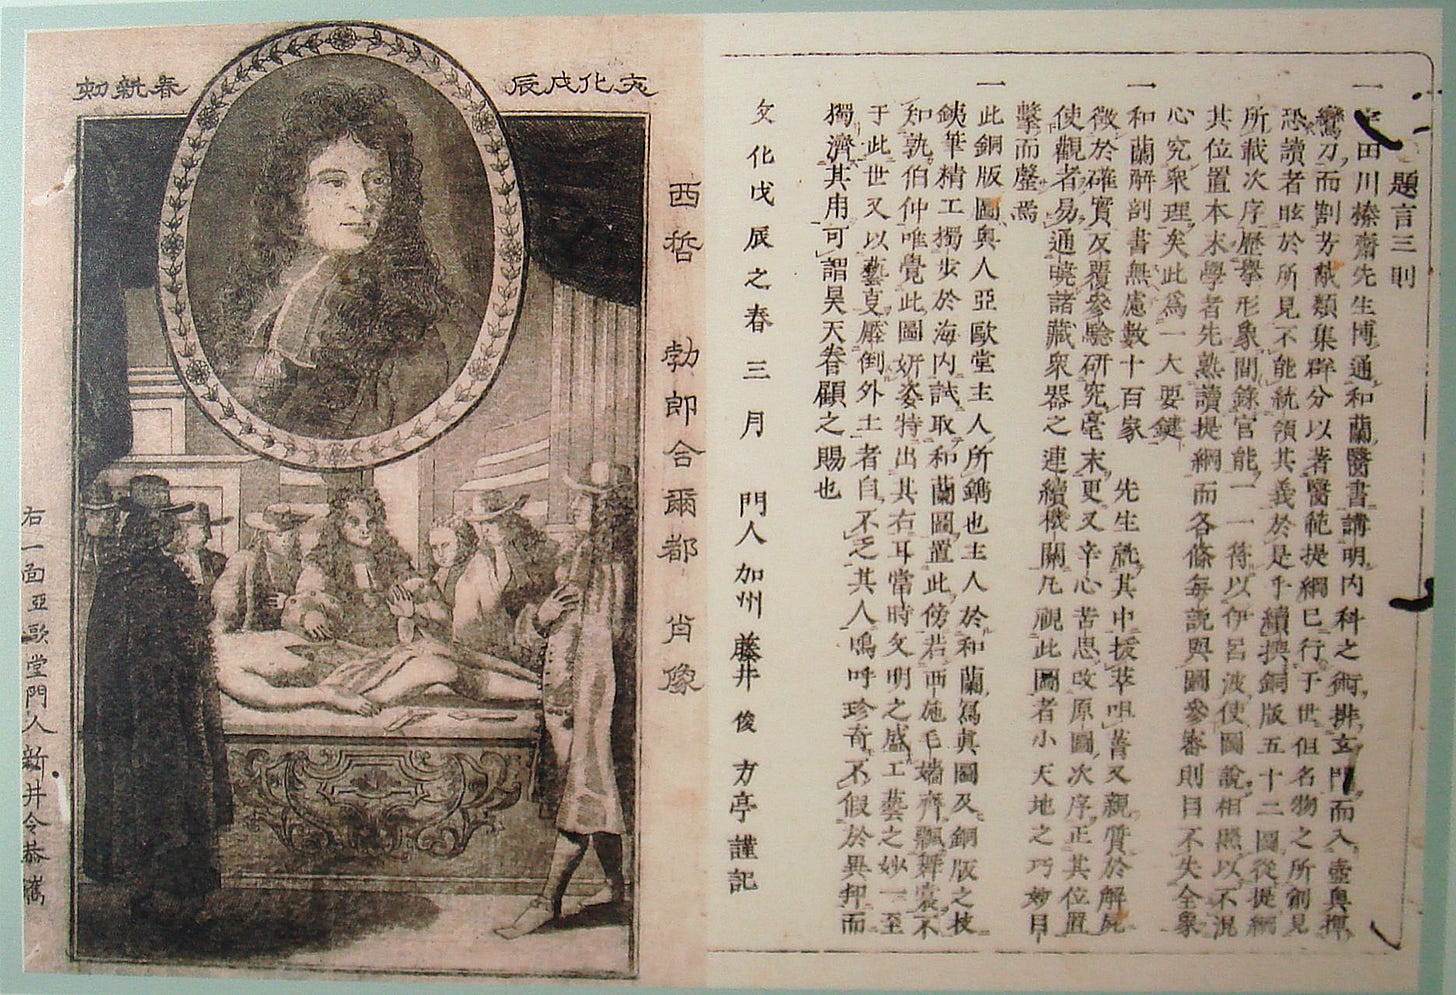 題言三則
一 宇田川榛齋先生博通和蘭醫書講明内科之術排玄門而入壺奥揮
鸞刀而割芳猷類集群分以著醫範提綱已行于世但名物之所創見
恐讀者眩於所見不能統領其義於是乎續撰銅版五十二圖從提綱
所載次序歷擧形象間錄官能一一符以伊呂波使圖說相照以不混
其位置本末學者先熟讀提綱而各條每說與圖參審則目不失全象
心究衆理矣此爲一大要鍵
一 和蘭解剖書無慮數十百家 先生就其中援萃咀菁又親質於解屍
徵於確實反覆參驗研究毫末更又辛心苦思改原圖次序正其位置
使觀者易通曉諸藏衆器之連續機關凡視此圖者小天地之巧妙目
擊而焉
一 此銅版圖奥人亞歐堂主人所鐫也主人於和蘭寫眞圖及銅版之技
銕筆精工獨步於海内試取和蘭圖置此傍若西施毛嬙齊飄舞裳不
知孰伯仲唯覺此圖妍姿特出其右耳當時文明之盛工藝之妙一至
于此世又以藝克壓倒外土者自不乏其人嗚呼珍奇不假於異邦而
獨濟其用可謂昊天眷顧之賜也
文化戊辰之春三月 門人加州藤井俊方亭謹記
文化戊辰
春新刻
西哲 勃郎合爾都 肖像
右一面亞歐堂門人新井令恭鐫